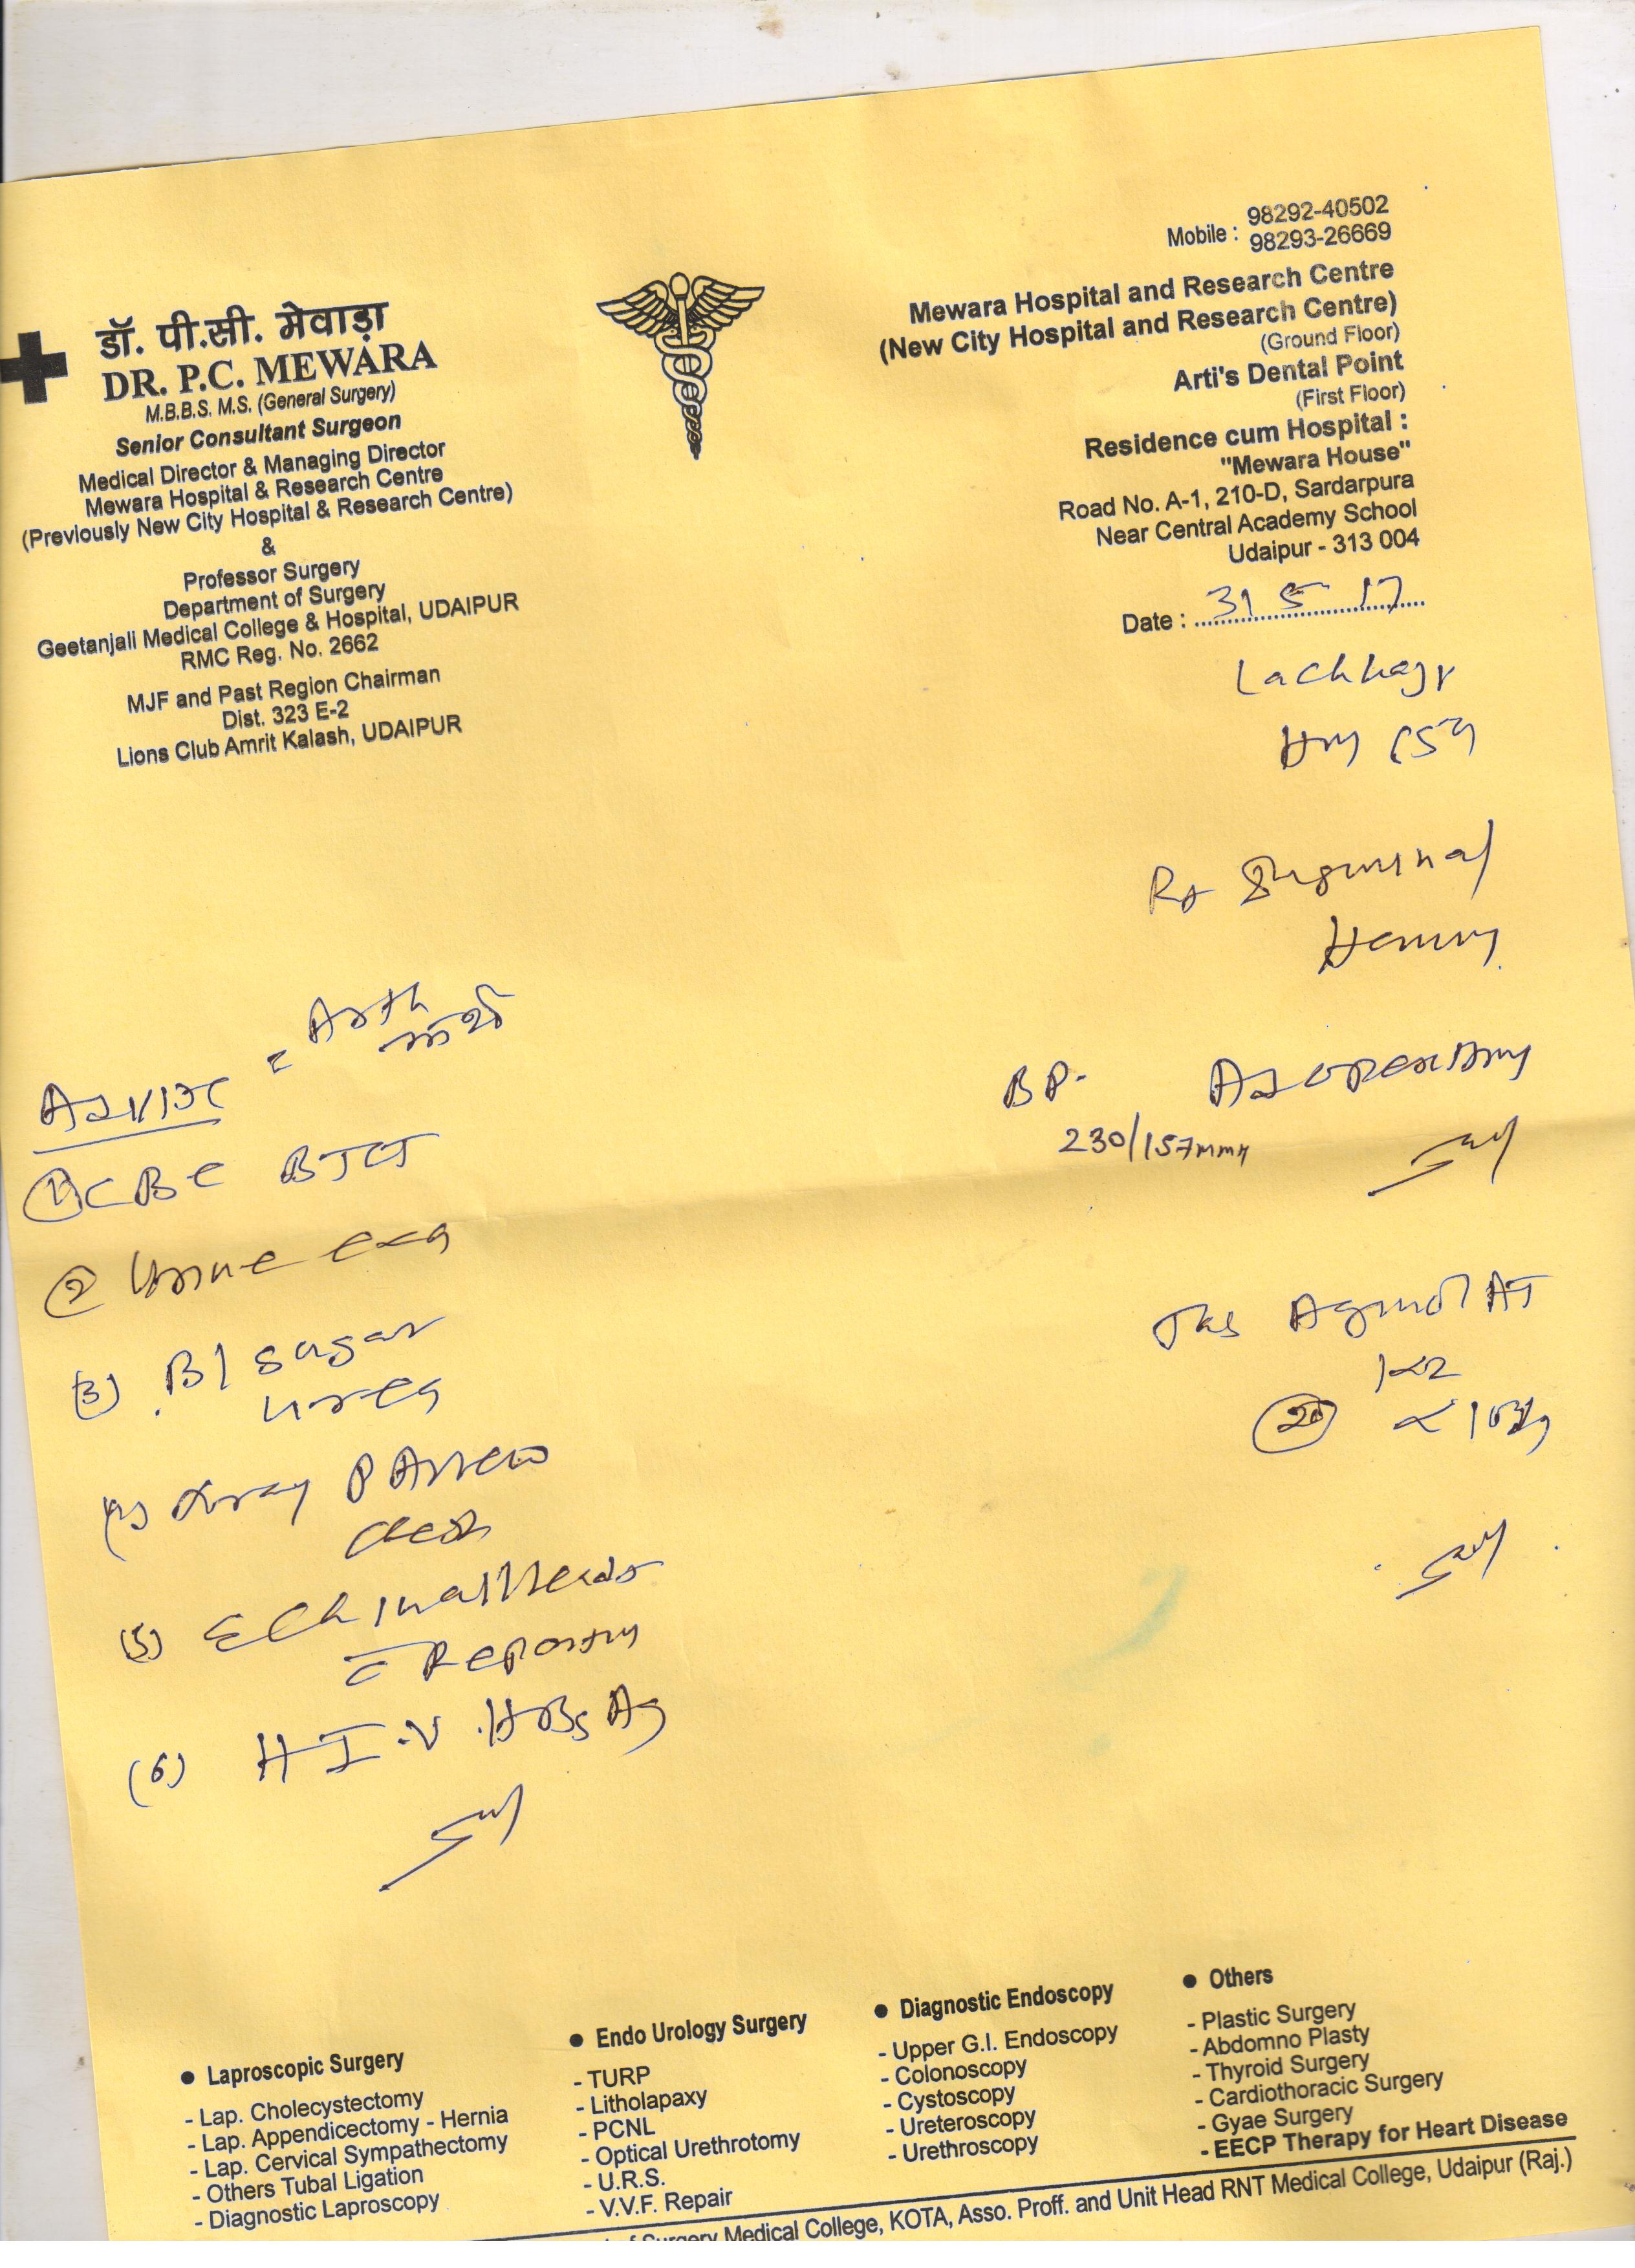 डॉ. पी.सी. मेवाड़ा
DR. P.C. MEWARA
M.B.B.S. M.S. (General Surgery)
Senior Consultant Surgeon
Medical Director & Managing Director
Mewara Hospital & Research Centre
(Previously New City Hospital & Research Centre)
&
Professor Surgery
Department of Surgery
Geetanjali Medical College & Hospital, UDAIPUR
RMC Reg. No. 2662
MJF and Past Region Chairman
Dist. 323 E-2
Lions Club Amrit Kalash, UDAIPUR
Mobile : 98292-40502
98293-26669
Mewara Hospital and Research Centre
(New City Hospital and Research Centre)
(Ground Floor)
Arti's Dental Point
(First Floor)
Residence cum Hospital :
"Mewara House"
Road No. A-1, 210-D, Sardarpura
Near Central Academy School
Udaipur - 313 004
Date : 31 5 17
Rt Inguinal
Hernia
BP.
230/157mmH
= Arth
Advise
(1) CBC BTCT
(2) Urine exa
(3) Bl sugar
urea
(4) Xray P A View
Chest
(5) all leads
Reporting
(6) H I V HBsAg
Tab AT
1x2
(20) x 10
● Laproscopic Surgery
- Lap. Cholecystectomy
- Lap. Appendicectomy - Hernia
- Lap. Cervical Sympathectomy
- Others Tubal Ligation
- Diagnostic Laproscopy
● Endo Urology Surgery
- TURP
- Litholapaxy
- PCNL
- Optical Urethrotomy
- U.R.S.
- V.V.F. Repair
● Diagnostic Endoscopy
- Upper G.I. Endoscopy
- Colonoscopy
- Cystoscopy
- Ureteroscopy
- Urethroscopy
● Others
- Plastic Surgery
- Abdomno Plasty
- Thyroid Surgery
- Cardiothoracic Surgery
- Gyae Surgery
- EECP Therapy for Heart Disease
of Surgery Medical College, KOTA, Asso. Proff. and Unit Head RNT Medical College, Udaipur (Raj.)